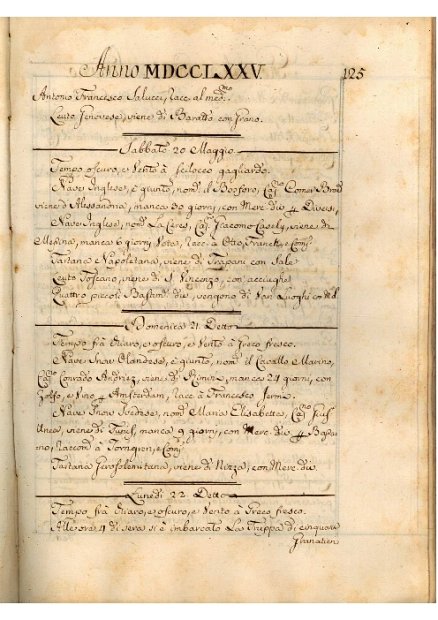 Anno MDCCLXXV. 125
Antonio Francesco Salucci, racc. al med.mo
Leuto Genovese, viene di Baratto con Grano.
Sabbato 20 Maggio
Tempo oscuro, e Vento à Scilocco gagliardo.
Nave Inglese, è giunto, nom.ta il Bosforo, Cap.
viene d'Alessandria, manca 30 giorni, con Merc. div.
Nave Inglese, nom.ta La Ceres, Cap. Giacomo viene di
Messina, manca 6 giorni racc. a Otto Franck, e Comp.
Tartana Napoletana, viene di Trapani con Sale
Leuto Toscano, viene di S. Vincenzo, con acciughe
Quattro piccoli Bastim. div. vengono di Vari Luoghi con
Domenica 21 Detto
Tempo frà Chiaro, e oscuro, e Vento à Greco fresco.
Nave Snow Olandese, è giunto, nom.ta il Cavallo Marino,
Cap. Conrado viene di Rimini, manca 21 giorni, con
Zolfo, e Vino p Amsterdam, racc. à Francesco
Nave Snow Svedese, nom.ta Maria Elisabetta, Cap.
viene di manca 9 giorni, con Merc. div. p
racc. à e Comp.
Tartana Gerosolimitana, viene di Nizza, con Merc. div.
Lunedì 22 Detto
Tempo frà Chiaro, e oscuro, e Vento à Greco fresco.
Alle ore 4 di sera si è imbarcato La Truppa di cinquanta
Granatieri